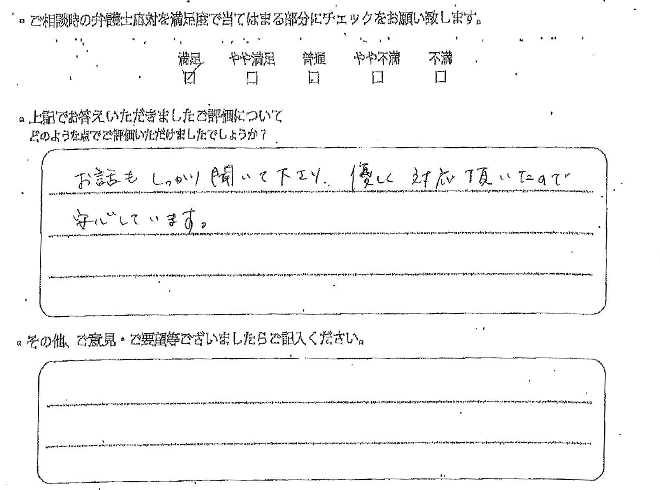 ご相談時の弁護士応対を満足度で当てはまる部分にチェックをお願い致します。
満足 やや満足 普通 やや不満 不満
☑ □ □ □ □
上記でお答えいただきましたご評価について
どのような点でご評価いただけましたでしょうか?
お話もしっかり聞いて下さり、優しく対応頂いたので
安心しています。
その他、ご意見・ご要望等ございましたらご記入ください。